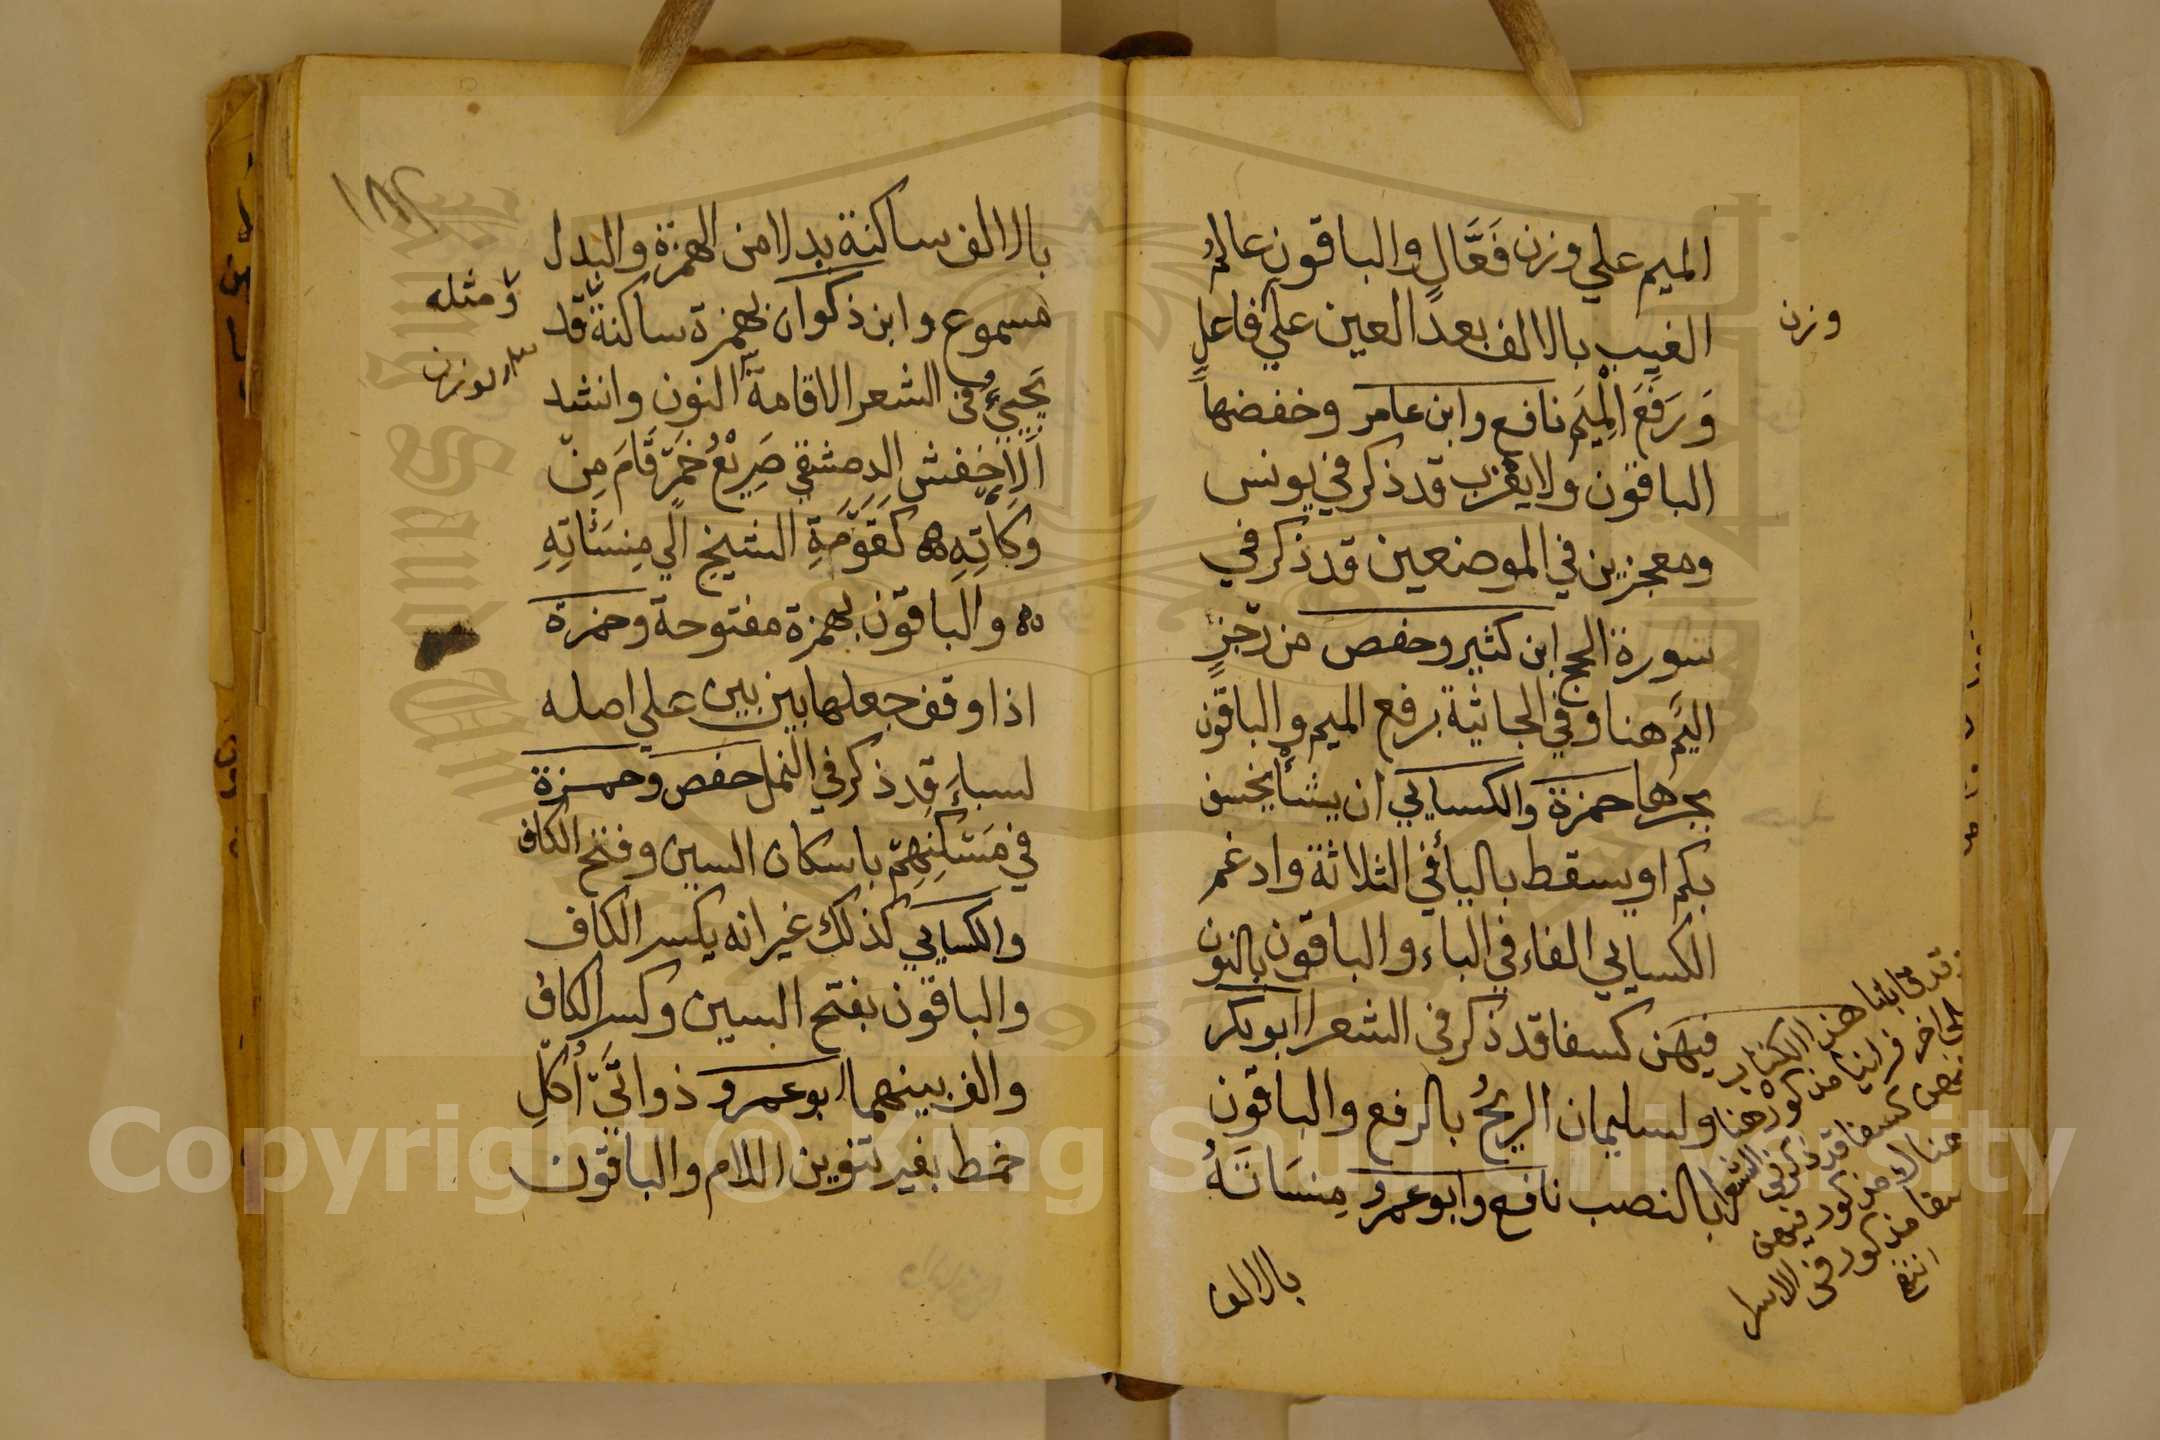 الميم علي وزن فَعَّالٍ والباقون عالمُ
الغيب بالالف بعد العين علي فاعلٍ
وزن
وَرَفَعَ الْمِيَم نافع وابن عامر وخفضها
الباقون ولا يعْزب قد ذكر في يونس
ومعجزين في الموضعين قد ذكر في
سورة الحج ابن كثير وحفص من رجزٍ
اليَم هنا وفي الجاثية برفع الميم والباقون
بجرها حمزة والكسايي ان يشأ يخسف
بكم او يسقط باليأ في الثلاثة وادغم
الكسايي الفاء في الباء والباقون بالنون
فيهن كسفا قد ذكر في الشعرا ابو بكر
ولسليمان الريحُ بالرفع والباقون
بالنصب نافع وابو عمرو مِنسَاتَهُ
بالالف
كسفا قد ذكر في الشعرا
هناك مذكور فيهن
مذكور في الاسرا
انتهى
١٨٢
بالالف ساكنة بدلا من الهمزة والبدل
مسموع وابن ذكوان بهمزة ساكنة قد
ومثله
يَجِيءُ في الشعر الاقامة النون وانشد
لوزن
الاخفش الدمشقي صَرِيْعُ خَمْرٍ قَامَ مِنْ
وُكَاتِهِ ه كَقَوْمَةِ الشيخ الي مِنسَئاتِهِ
ه والباقون بهمزة مفتوحة وحمزة
اذا وقف جعلها بين بين علي اصله
لسباءٍ قد ذكر في النمل حفص وحمزة
في مَسْكَنِهِمْ باسكان السين وفتح الكاف
والكسايي كذلك غير انه يكسر الكاف
والباقون بفتح السين وكسر الكاف
والف بينهما ابو عمرو ذواتَيْ أُكُلِ
خمط بغير تنوين اللام والباقون
Copyright © King Saud University